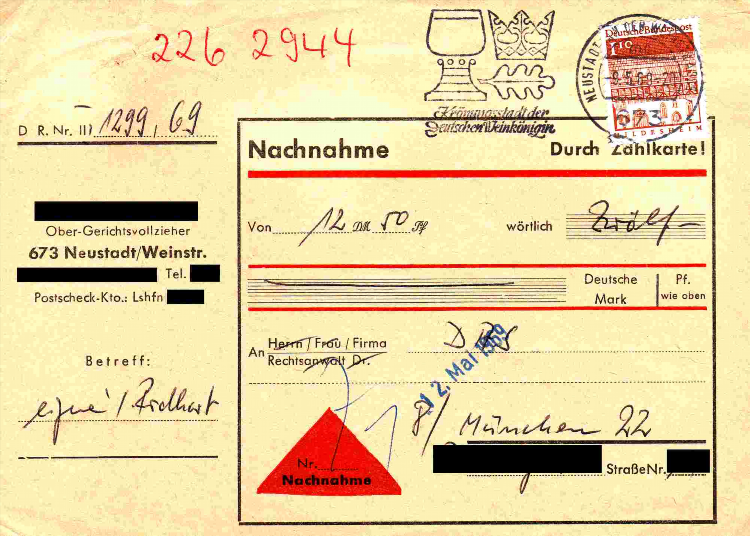 226 2944
D R. Nr. III 1299, 69
Ober-Gerichtsvollzieher
673 Neustadt/Weinstr.
Tel.
Postscheck-Kto.: Lshfn
Betreff:
Krönungsstadt der
Deutschen Weinkönigin
NEUSTADT AN DER W
673
Deutsche Bundespost
HILDESHEIM
Nachnahme Durch Zahlkarte!
Von 12 DM 50 Pf wörtlich Zwölf
Deutsche Mark Pf. wie oben
An Herrn / Frau / Firma
Rechtsanwalt Dr.
12. Mai 1969
8/ München 22
Straße Nr.
Nr.
Nachnahme